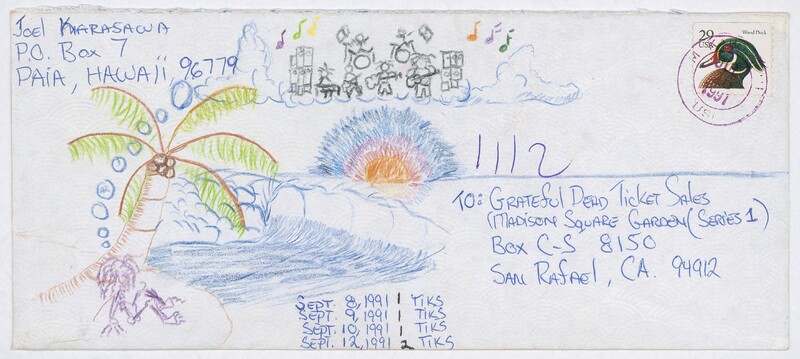 Joel Karasawa
P.O. Box 7
Paia, Hawaii 96779
29
USA
Wood Duck
1991
1112
To: Grateful Dead Ticket Sales
(Madison Square Garden (Series 1)
Box C-S 8150
San Rafael, CA. 94912
Sept. 8, 1991 1 Tiks
Sept. 9, 1991 1 Tiks
Sept. 10, 1991 1 Tiks
Sept. 12, 1991 2 Tiks